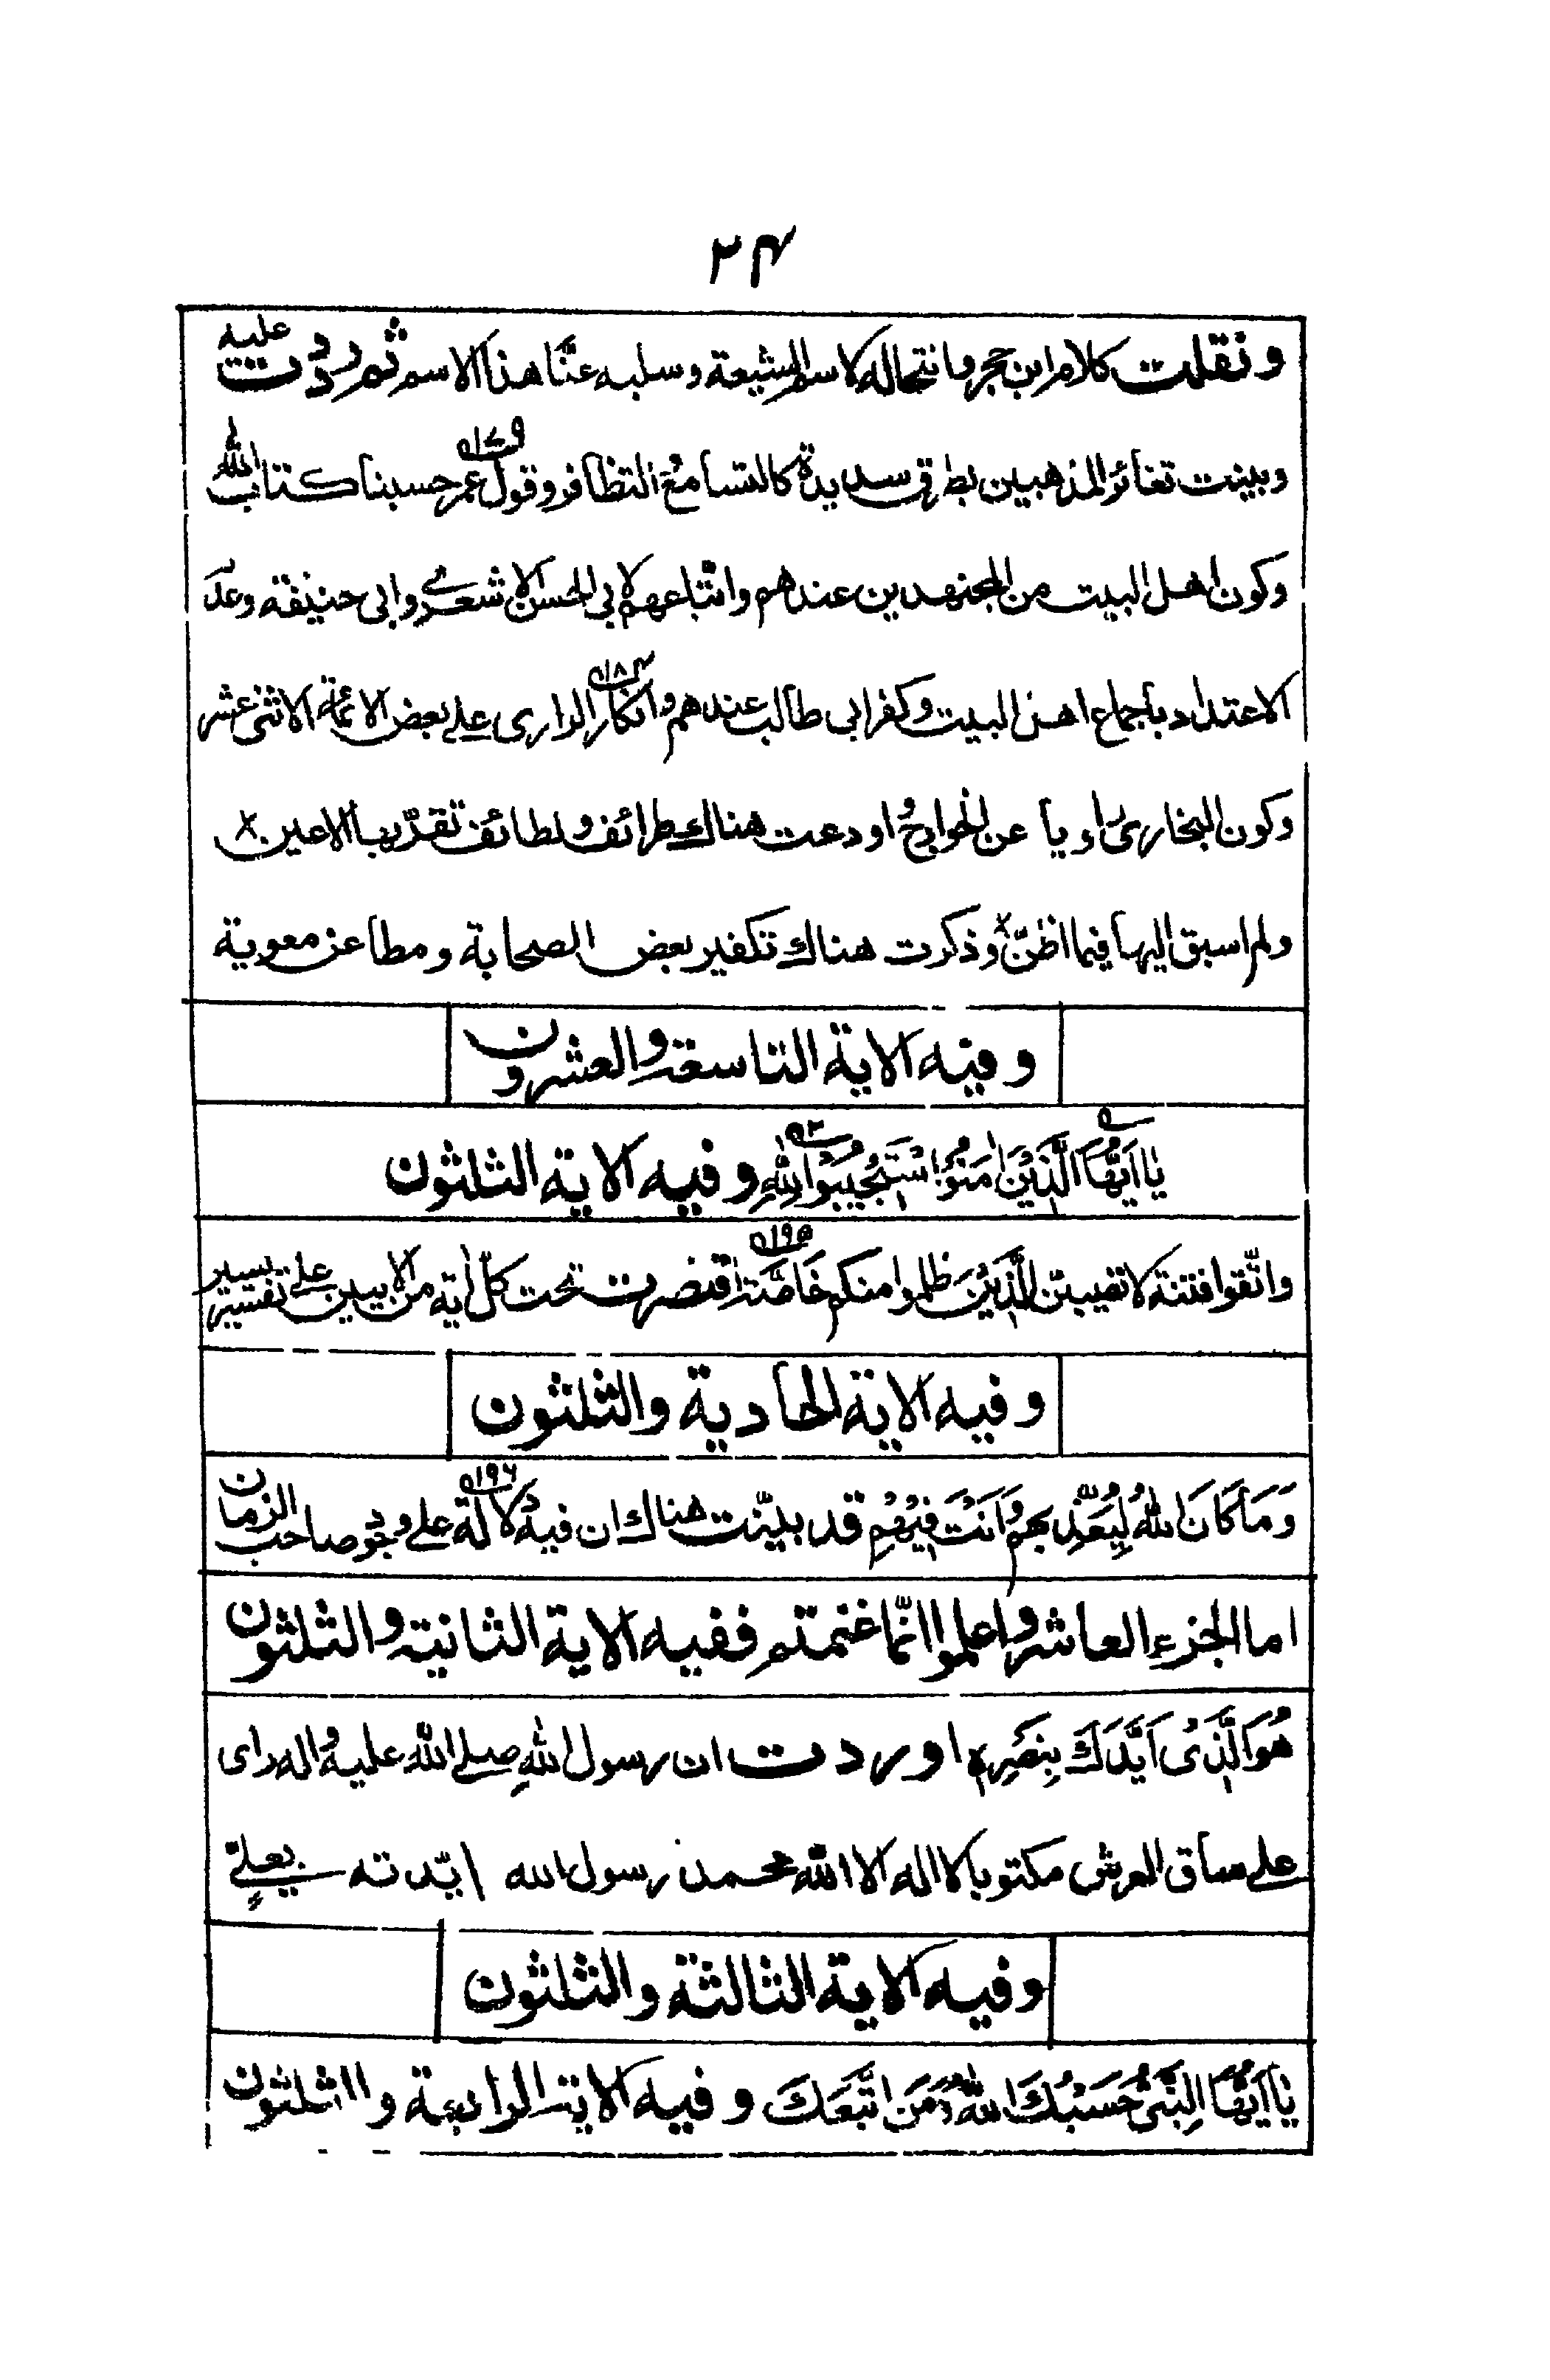 ٢٤
ونقلت كلام ابن حجر وانتحاله لاسم الشيعة وسلبه عنّا هذا الاسم ثم رددت عليه
وبينت تغائر المذهبين بطرق سديدة كالتسامع التظافر وقول عمر حسبنا كتاب الله
وكون اهل البيت من المجتهدين عندهم واتباعهم لابي الحسن الاشعري وابي حنيفة وعدم
الاعتداد باجماع اهل البيت وكفر ابي طالب عندهم وانكار الرازى على بعض الائمة الاثنى عشر
وكون البخاري راويا عن الخوارج واودعت هناك طرائف ولطائف تقرّبها الاعين
ولم اسبق اليها فيما اظنّ وذكرت هناك تكفير بعض الصحابة ومطاعن معوية
وفيه الاية التاسعة والعشرون
يَا اَيُّهَا الَّذِيْنَ اٰمَنُوْا اسْتَجِيْبُوْا لِلّٰهِ وفيه الاية الثلثون
١٩٢
واتّقوا فتنة لا تصيبنّ الَّذِيْنَ ظلموا منكم خَاصَّة اقتصرت تحت كلّ اية من الايتين على تفسير يسير
١٩٥
وفيه الاية الحادية والثلثون
وَمَا كَانَ اللّٰهُ لِيُعَذِّبَهُمْ وَاَنْتَ فِيْهِمْ قد بيّنت هناك ان فيه دلالة على وجود صاحب الزمان
١٩٦
اما الجزء العاشر واعلموا انّما غنمتم ففيه الاية الثانية والثلثون
هُوَ الَّذِىْ اَيَّدَكَ بِنَصْرِهٖ اوردت ان رسول اللهِ صلى الله عليه واله راى
على ساق العرش مكتوبا لا اله الا الله محمد رسول الله ايّدته بعليّ
وفيه الاية الثالثة والثلثون
يَا اَيُّهَا النَّبِىُّ حَسْبُكَ اللّٰهُ وَمَنِ اتَّبَعَكَ وفيه الاية الرابعة والثلثون